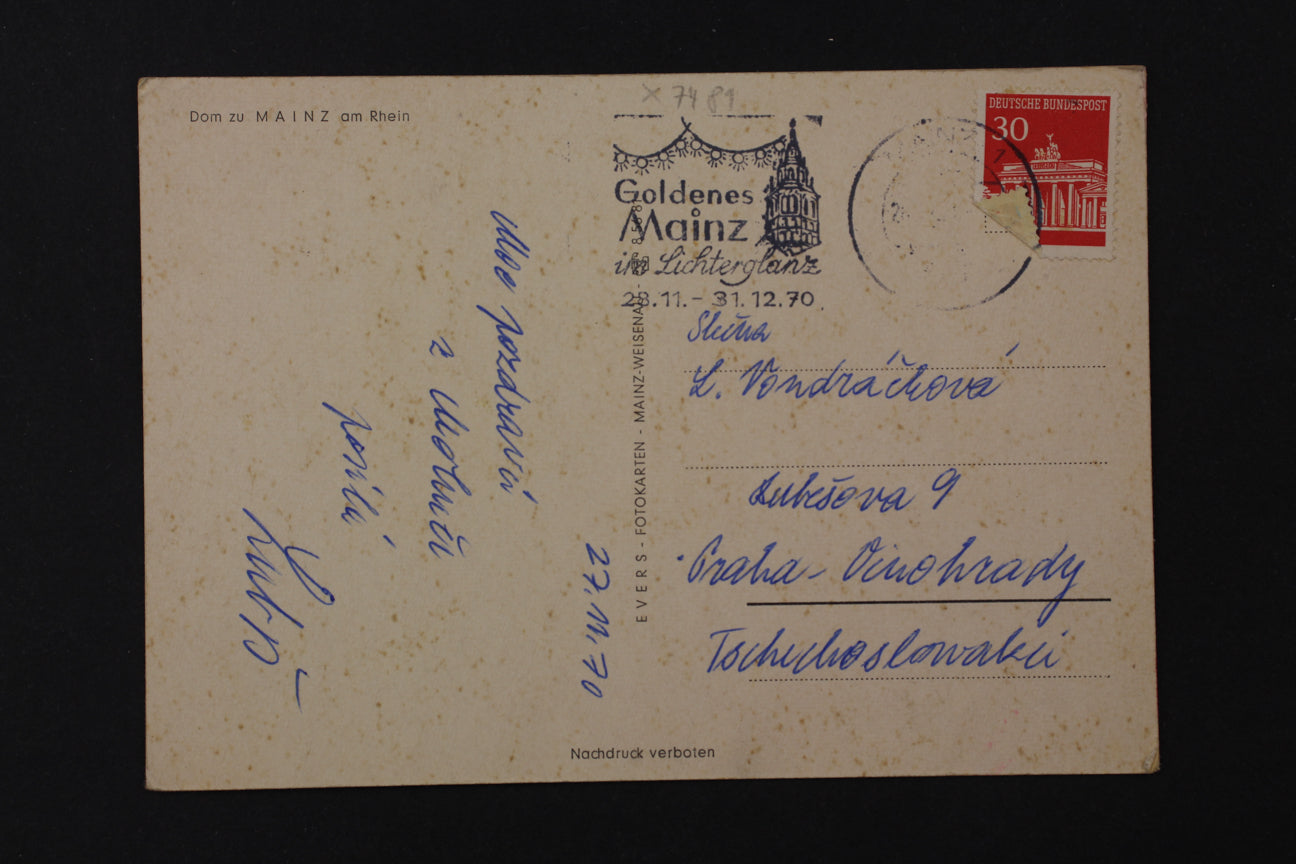 Dom zu MAINZ am Rhein
x 7481
DEUTSCHE BUNDESPOST
30
MAINZ 1
Goldenes
Mainz
im Lichterglanz
28.11. - 31.12.70
Moc pozdravů
z Mohuče
posílá
27.11.70
EVERS - FOTOKARTEN - MAINZ-WEISENAU
Slečna
L. Vondráčková
Lubešova 9
Praha - Vinohrady
Tschechoslowakei
Nachdruck verboten